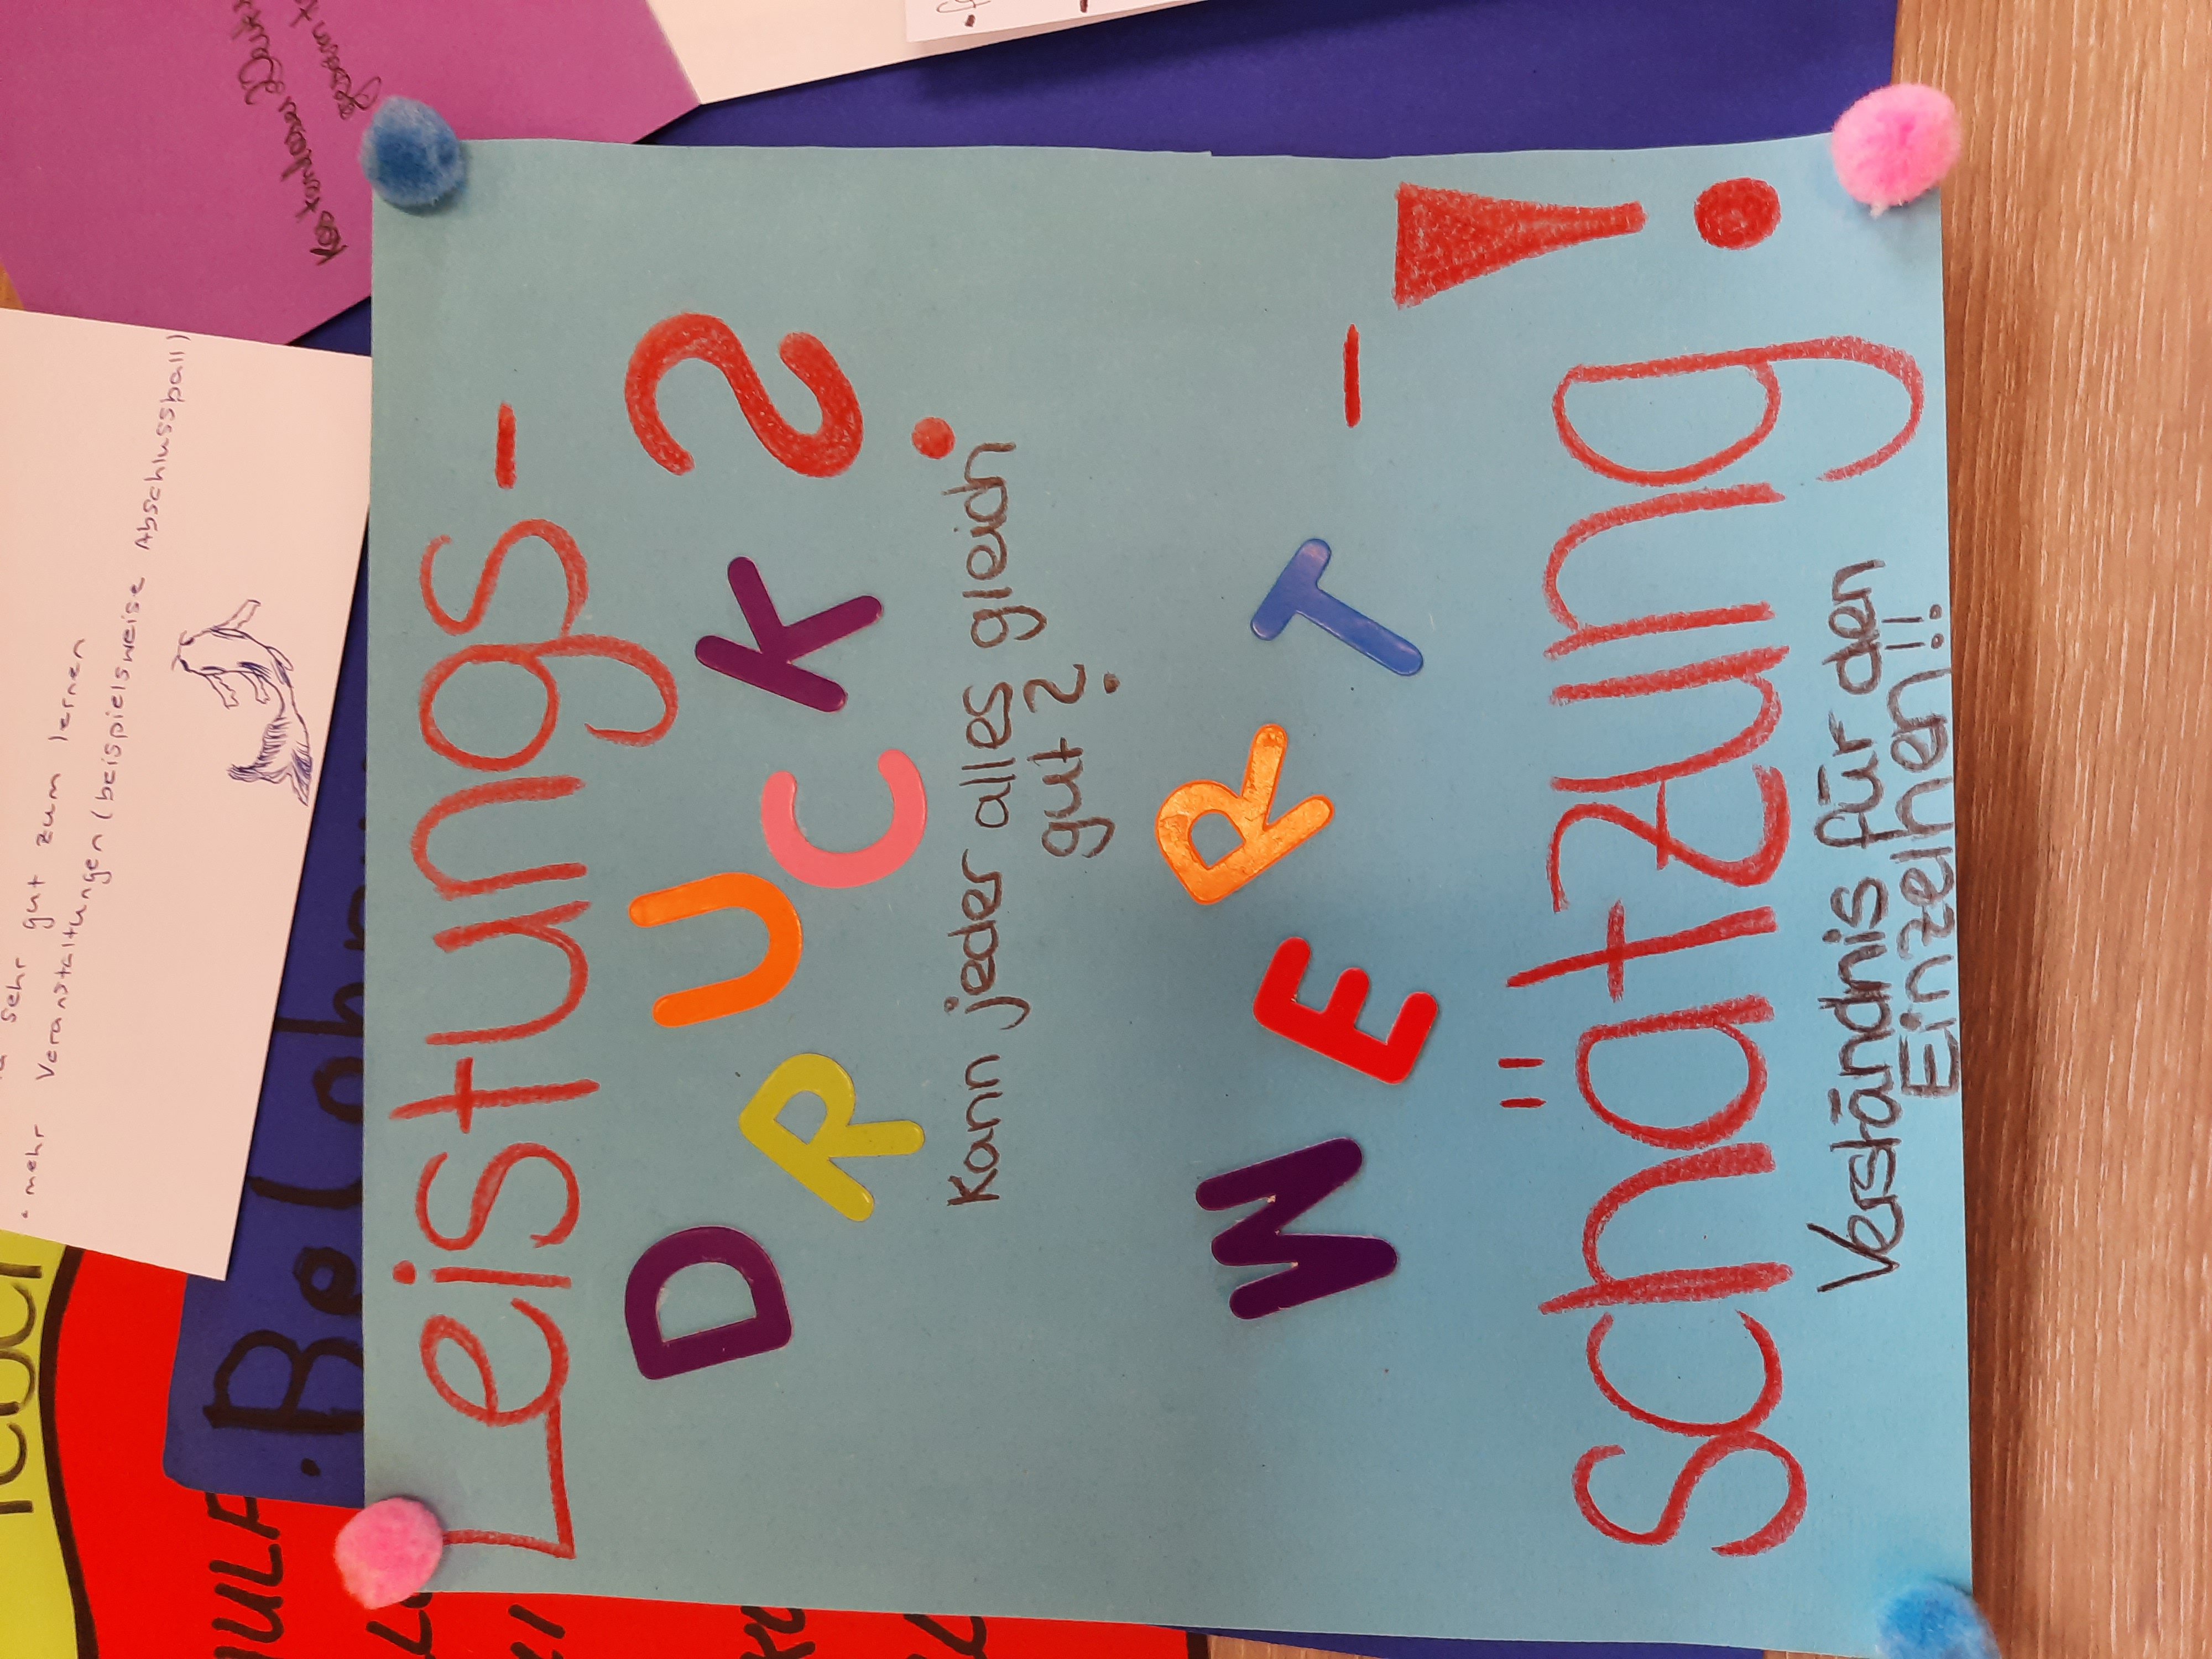 Leistungs-
DRUCK?
Kann jeder alles gleich
gut?
WERT-
schätzung!
Verständnis für den
Einzelnen!!
sehr gut zum lernen
- mehr Veranstaltungen (beispielsweise Abschlussball)